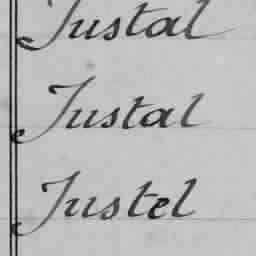 Justal
Justal
Justel